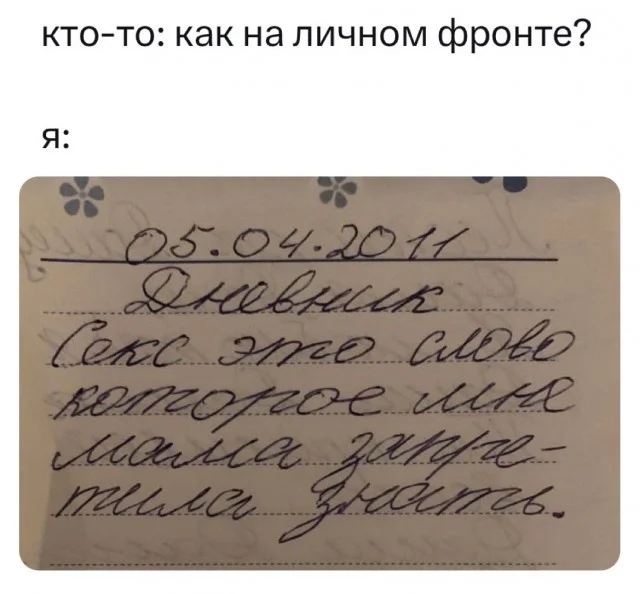 кто-то: как на личном фронте?
я:
05.04.2011
Дневник
Секс это слово
которое мне
мама запре-
тила знать.